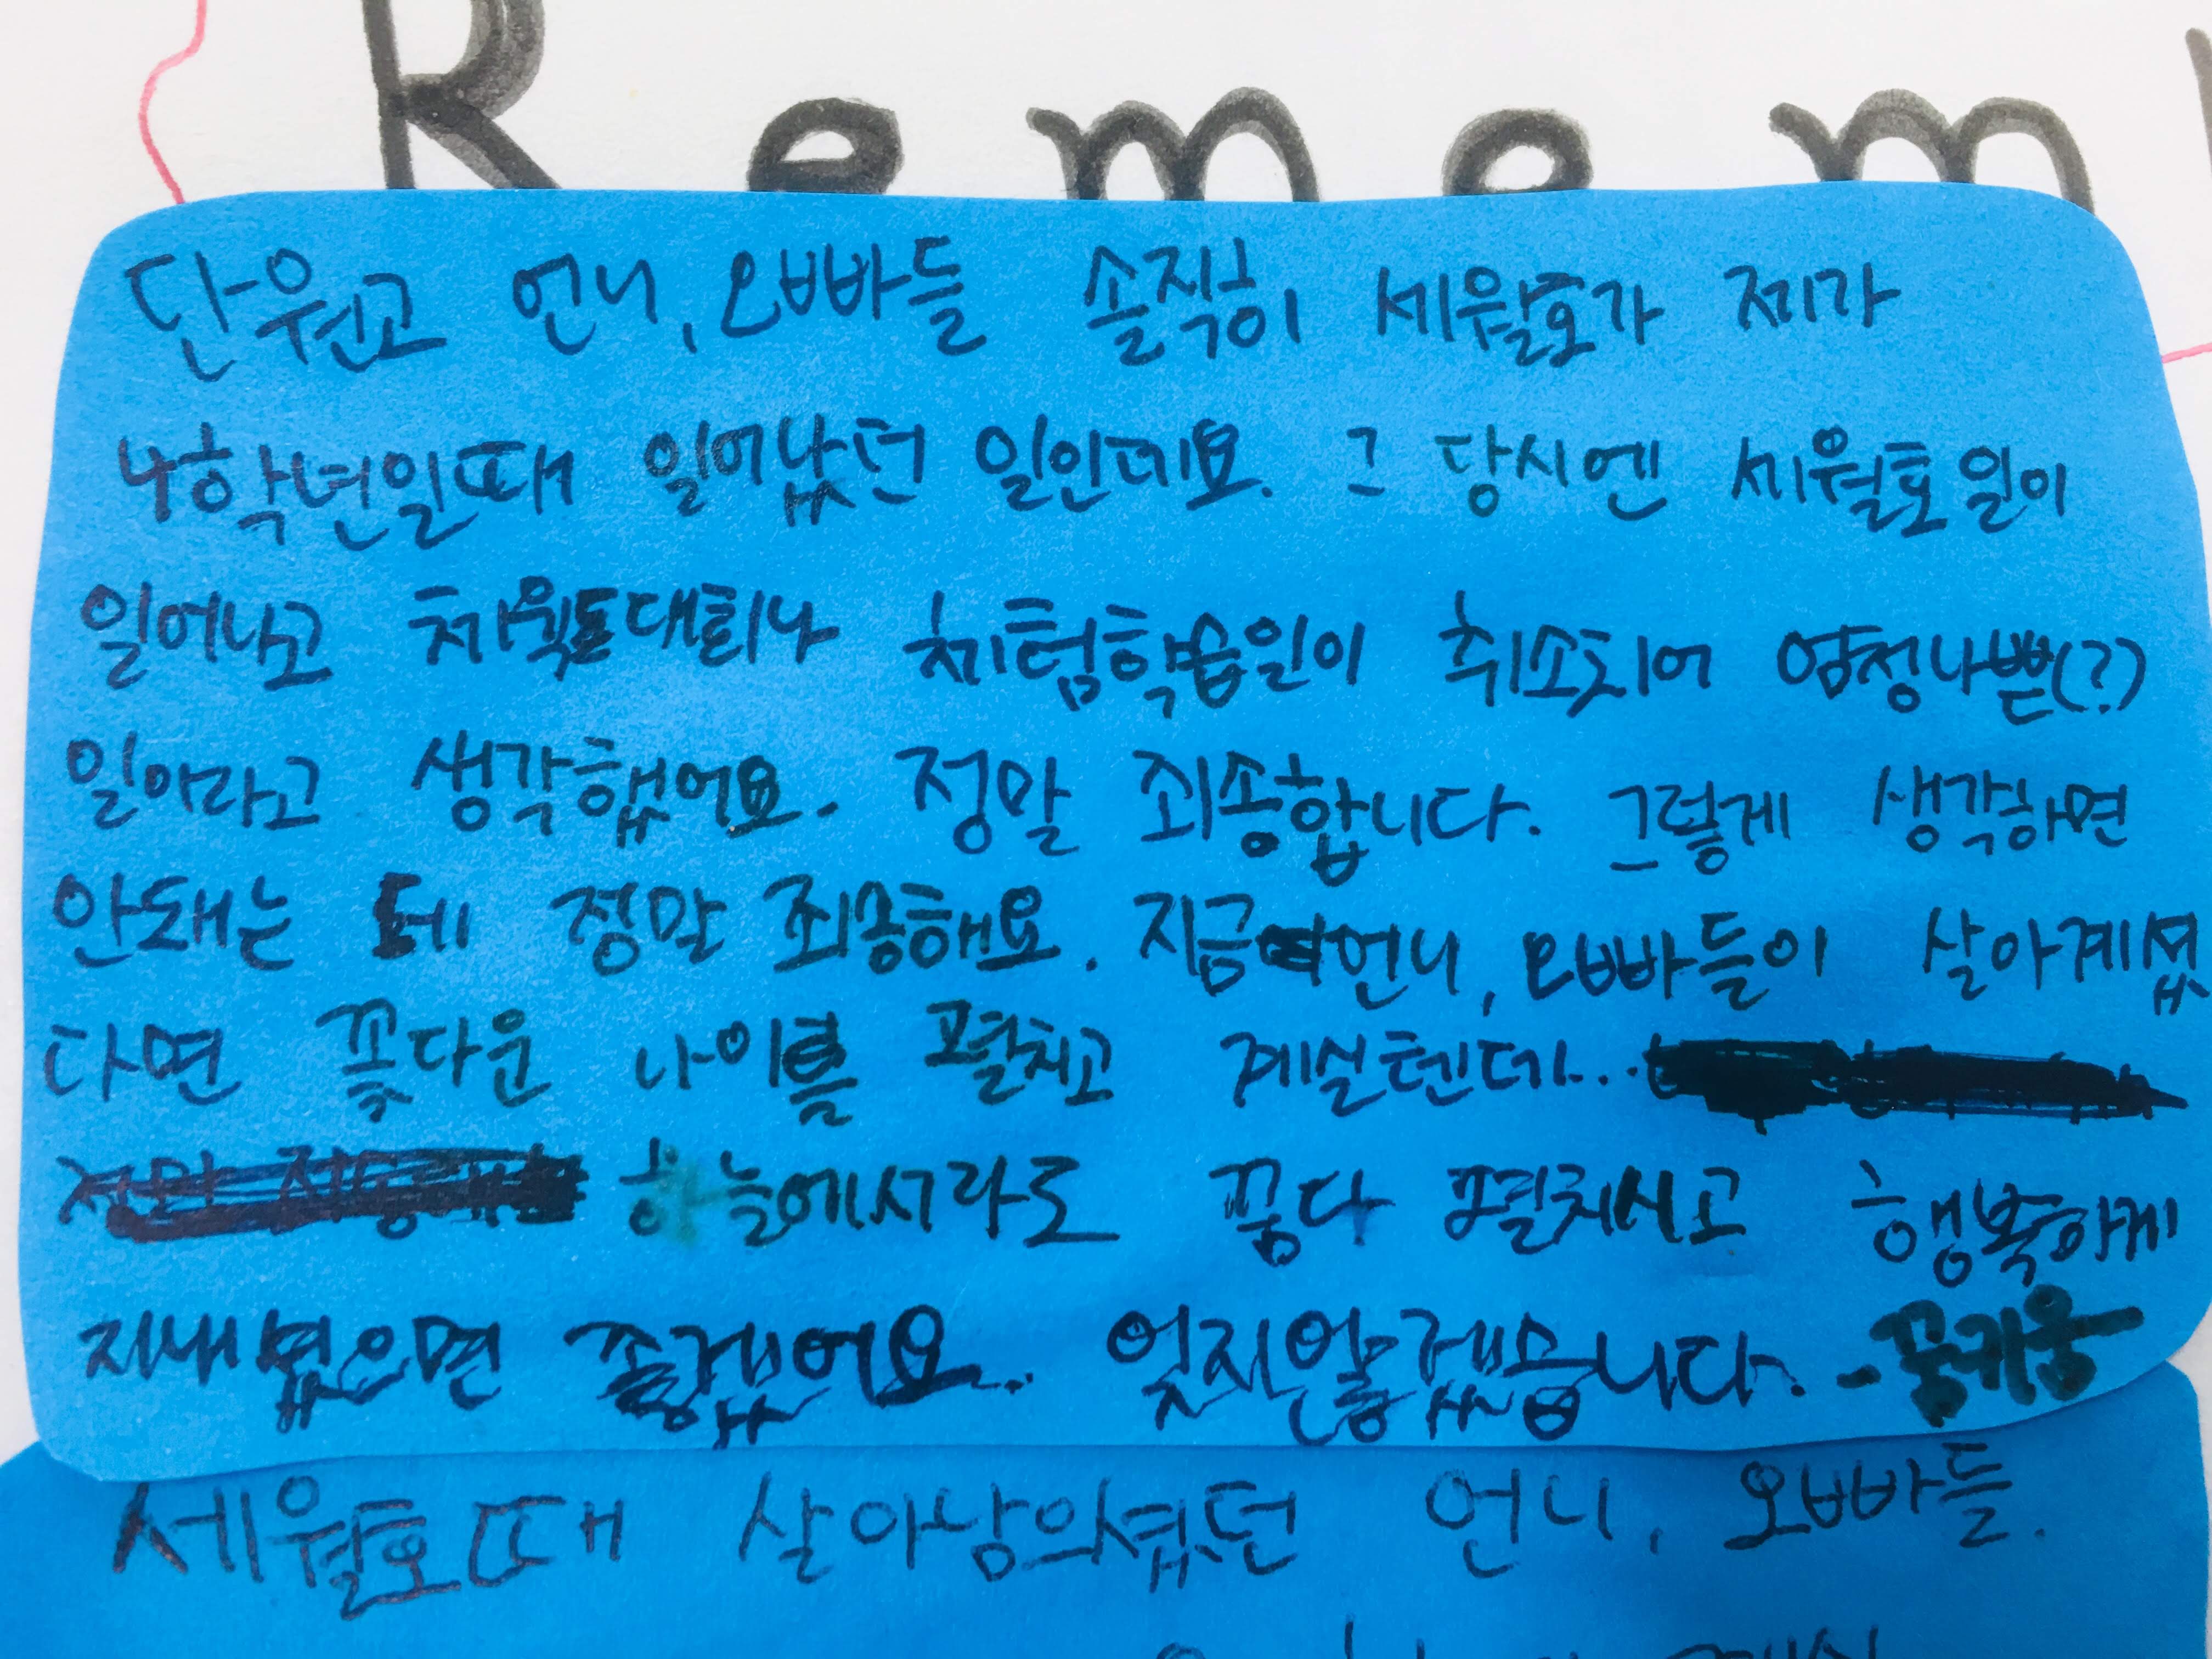 Remem
단원고 언니, 오빠들 솔직히 세월호가 제가
4학년일때 일어났던 일인데요. 그 당시엔 세월호일이
일어나고 체육대회나 체험학습일이 취소되어 엄청나쁜(?)
일이라고 생각했어요. 정말 죄송합니다. 그렇게 생각하면
안돼는 데 정말 죄송해요. 지금 언니, 오빠들이 살아계셨
다면 꽃다운 나이를 펼치고 계실텐데...
하늘에서라도 꿈다 펼치시고 행복하게
지내셨으면 좋겠어요.. 잊지않겠습니다.
세월호때 살아남의셨던 언니, 오빠들.